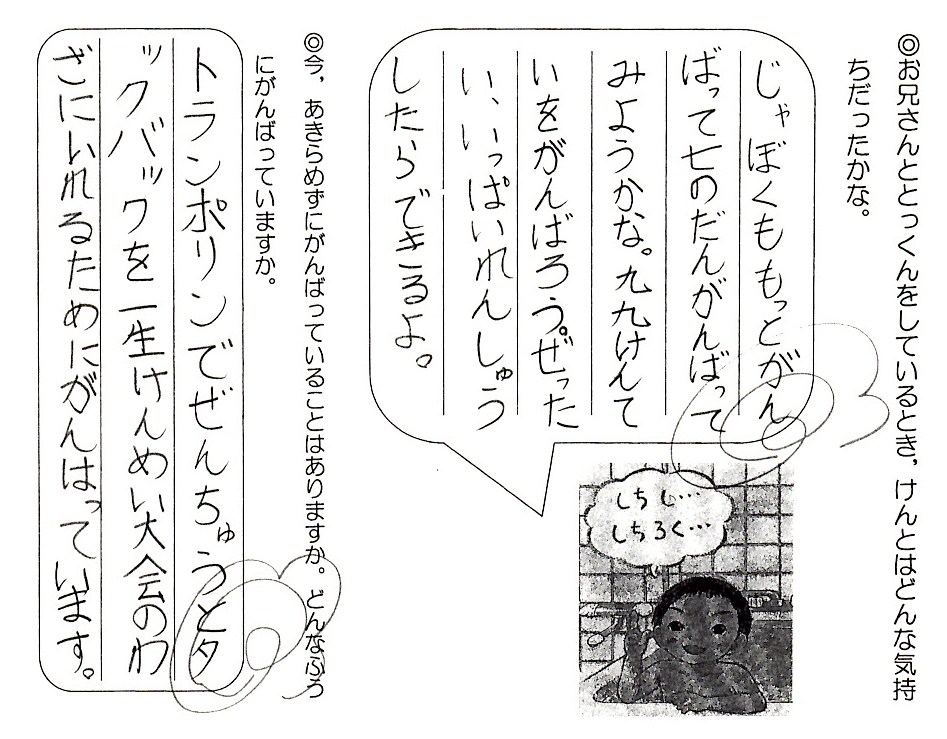 ◎お兄さんととっくんをしているとき，けんとはどんな気持
ちだったかな。
じゃぼくももっとがん
ばって七のだんがんばって
みようかな。九九けんて
いをがんばろう。ぜった
い、いっぱいれんしゅう
したらできるよ。
しちし…
しちろく…
◎今，あきらめずにがんばっていることはありますか。どんなふう
にがんばっていますか。
トランポリンでぜんちゅうとタ
ックバックを一生けんめい大会のわ
ざにいれるためにがんはっています。